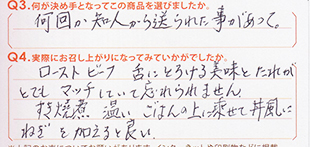 Q3.何が決め手となってこの商品を選びましたか。
何回か知人から送られた事があって。
Q4.実際にお召し上がりになってみていかがでしたか。
ローストビーフ 舌にとろける美味とたれが
とても マッチしていて忘れられません。
すき焼煮 温い ごはんの上に乗せて丼風に
ねぎを加えると良い。